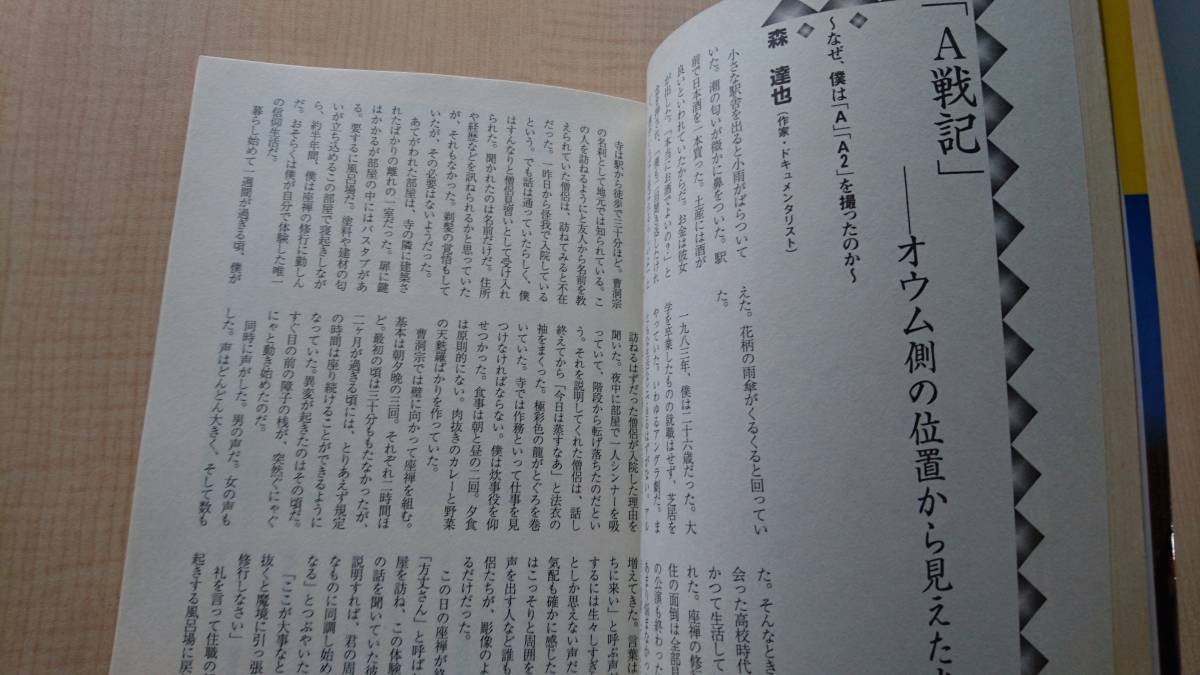 「A戦記」
――オウム側の位置から見えた
～なぜ、僕は「A」「A2」を撮ったのか～
森 達也(作家・ドキュメンタリスト)
小さな駅舎を出ると小雨がぱらついて
いた。潮の匂いが微かに鼻をついた。駅
前で日本酒を一本買った。土産には酒が
良いといわれていたからだ。お金は彼女
が出した。「本当にお酒でよいの?」と
えた。花柄の雨傘がくるくると回ってい
た。
一九八三年、僕は二十六歳だった。大
学を卒業したものの就職はせず、芝居を
やっていた。いわゆるアングラ劇だ。ま
た。そんなとき
会った高校時代
かつて生活して
れた。座禅の修行
住の面倒は全部見
の公演も終わった
寺は駅から徒歩で三十分ほど。曹洞宗
の名刹として地元では知られている。こ
の人を訪ねるようにと友人から名前を教
えられていた僧侶は、訪ねてみると不在
だった。一昨日から怪我で入院している
という。でも話は通っていたらしく、僕
はすんなりと僧侶見習いとして受け入れ
られた。聞かれたのは名前だけだ。住所
や経歴などを訊ねられるかと思っていた
が、それもなかった。剃髪の覚悟もして
いたが、その必要はないようだった。
あてがわれた部屋は、寺の隣に建築さ
れたばかりの離れの一室だった。扉に鍵
はかかるが部屋の中にはバスタブがあ
る。要するに風呂場だ。塗料や建材の匂
いが立ち込めるこの部屋で寝起きしなが
ら、約半年間、僕は座禅の修行に勤しん
だ。おそらくは僕が自分で体験した唯一
の信仰生活だ。
暮らし始めて一週間が過ぎる頃、僕が
訪ねるはずだった僧侶が入院した理由を
聞いた。夜中に部屋で一人シンナーを吸
っていて、階段から転げ落ちたのだとい
う。それを説明してくれた僧侶は、話し
終えてから「今日は蒸すなあ」と法衣の
袖をまくった。極彩色の龍がとぐろを巻
いていた。寺では作務といって仕事を見
つけなければならない。僕は炊事役を仰
せつかった。食事は朝と昼の二回。夕食
は原則的にない。肉抜きのカレーと野菜
の天麩羅ばかりを作っていた。
曹洞宗では壁に向かって座禅を組む。
基本は朝夕晩の三回。それぞれ二時間ほ
ど。最初の頃は三十分ももたなかったが、
二ヶ月が過ぎる頃には、とりあえず規定
の時間は座り続けることができるように
なっていた。異変が起きたのはその頃だ。
すぐ目の前の障子の桟が、突然ぐにゃぐ
にゃと動き始めたのだ。
同時に声がした。男の声だ。女の声も
した。声はどんどん大きく、そして数も
増えてきた。言葉は
ちに来い」と呼ぶ声
するには生々しすぎ
としか思えない声だ
気配も確かに感じた
はこっそりと周囲を
声を出す人など誰も
侶たちが、彫像のよ
るだけだった。
この日の座禅が終
「方丈さん」と呼ば
屋を訪ね、この体験
の話を聞いていた彼
説明すれば、君の周
なものに同調し始め
なる」とつぶやいた
「ここが大事なと
抜くと魔境に引っ張
修行しなさい」
礼を言って住職の
起きする風呂場に戻